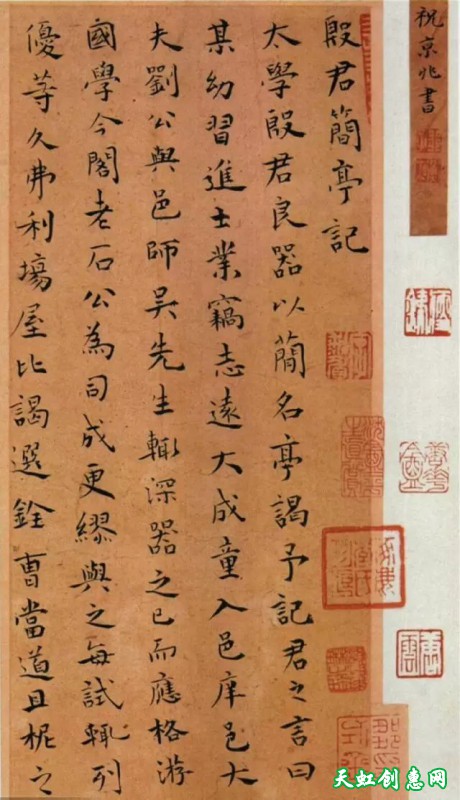 祝京兆書
殷君簡亭記
太學殷君良器以簡名亭謁予記君之言曰
某幼習進士業竊志遠大成童入邑庠邑大
夫劉公與邑師吳先生輙深器之已而應格游
國學今閣老石公為司成更繆與之每試輙列
優等久弗利場屋比謁選銓曹當道且柅之
天虹创惠网